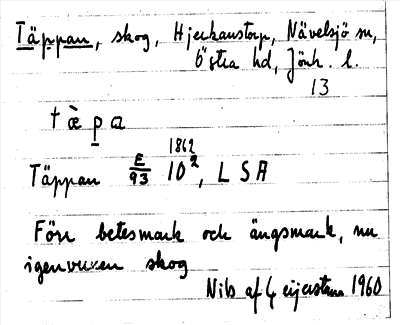 Täppan, skog, Hjerkanstorp, Nävelsjö sn,
Östra hd, Jönk. l.
13
tæ̀pa
1862
Täppan E/93 10², L S A
Förr betesmark och ängsmark, nu
igenvuxen skog
Nils af Geijerstam 1960